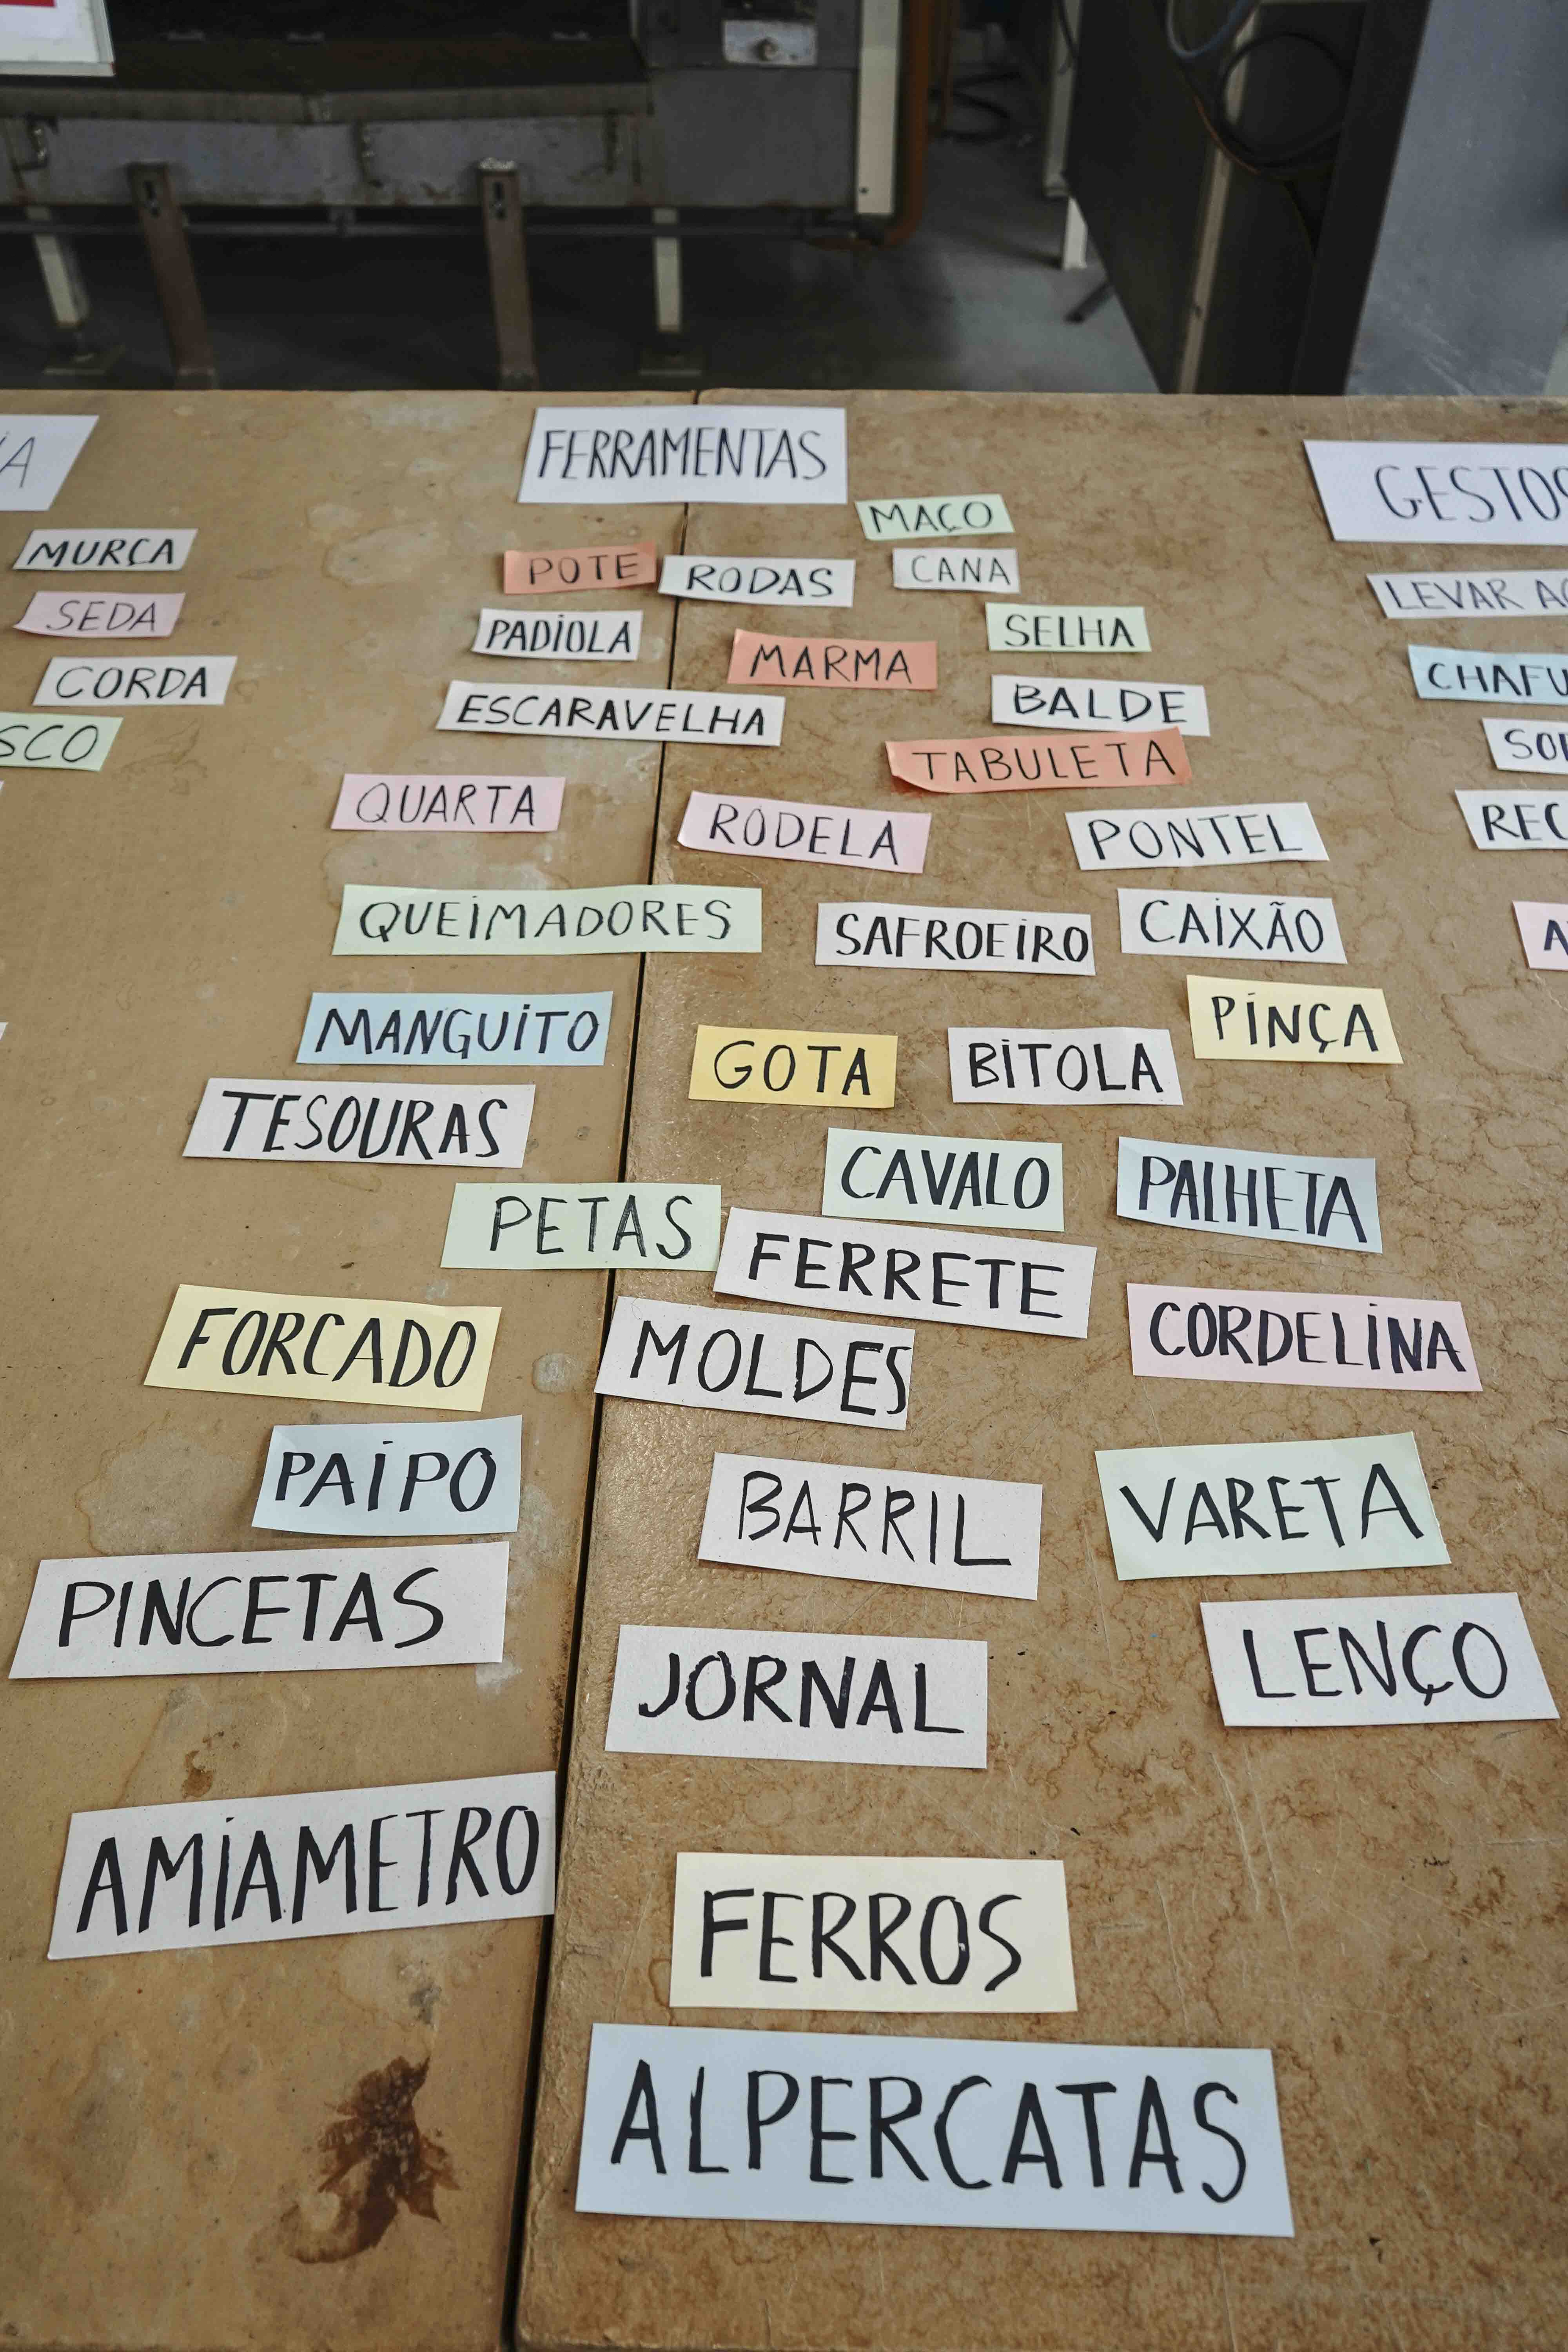 FERRAMENTAS
GESTOS
MAÇO
MURÇA
POTE
RODAS
CANA
LEVAR
SEDA
PADIOLA
SELHA
MARMA
CORDA
ESCARAVELHA
BALDE
TABULETA
QUARTA
RODELA
PONTEL
QUEIMADORES
SAFROEIRO
CAIXÃO
MANGUITO
PINÇA
GOTA
BITOLA
TESOURAS
CAVALO
PALHETA
PETAS
FERRETE
FORCADO
MOLDES
CORDELINA
PAIPO
BARRIL
VARETA
PINCETAS
JORNAL
LENÇO
AMIAMETRO
FERROS
ALPERCATAS